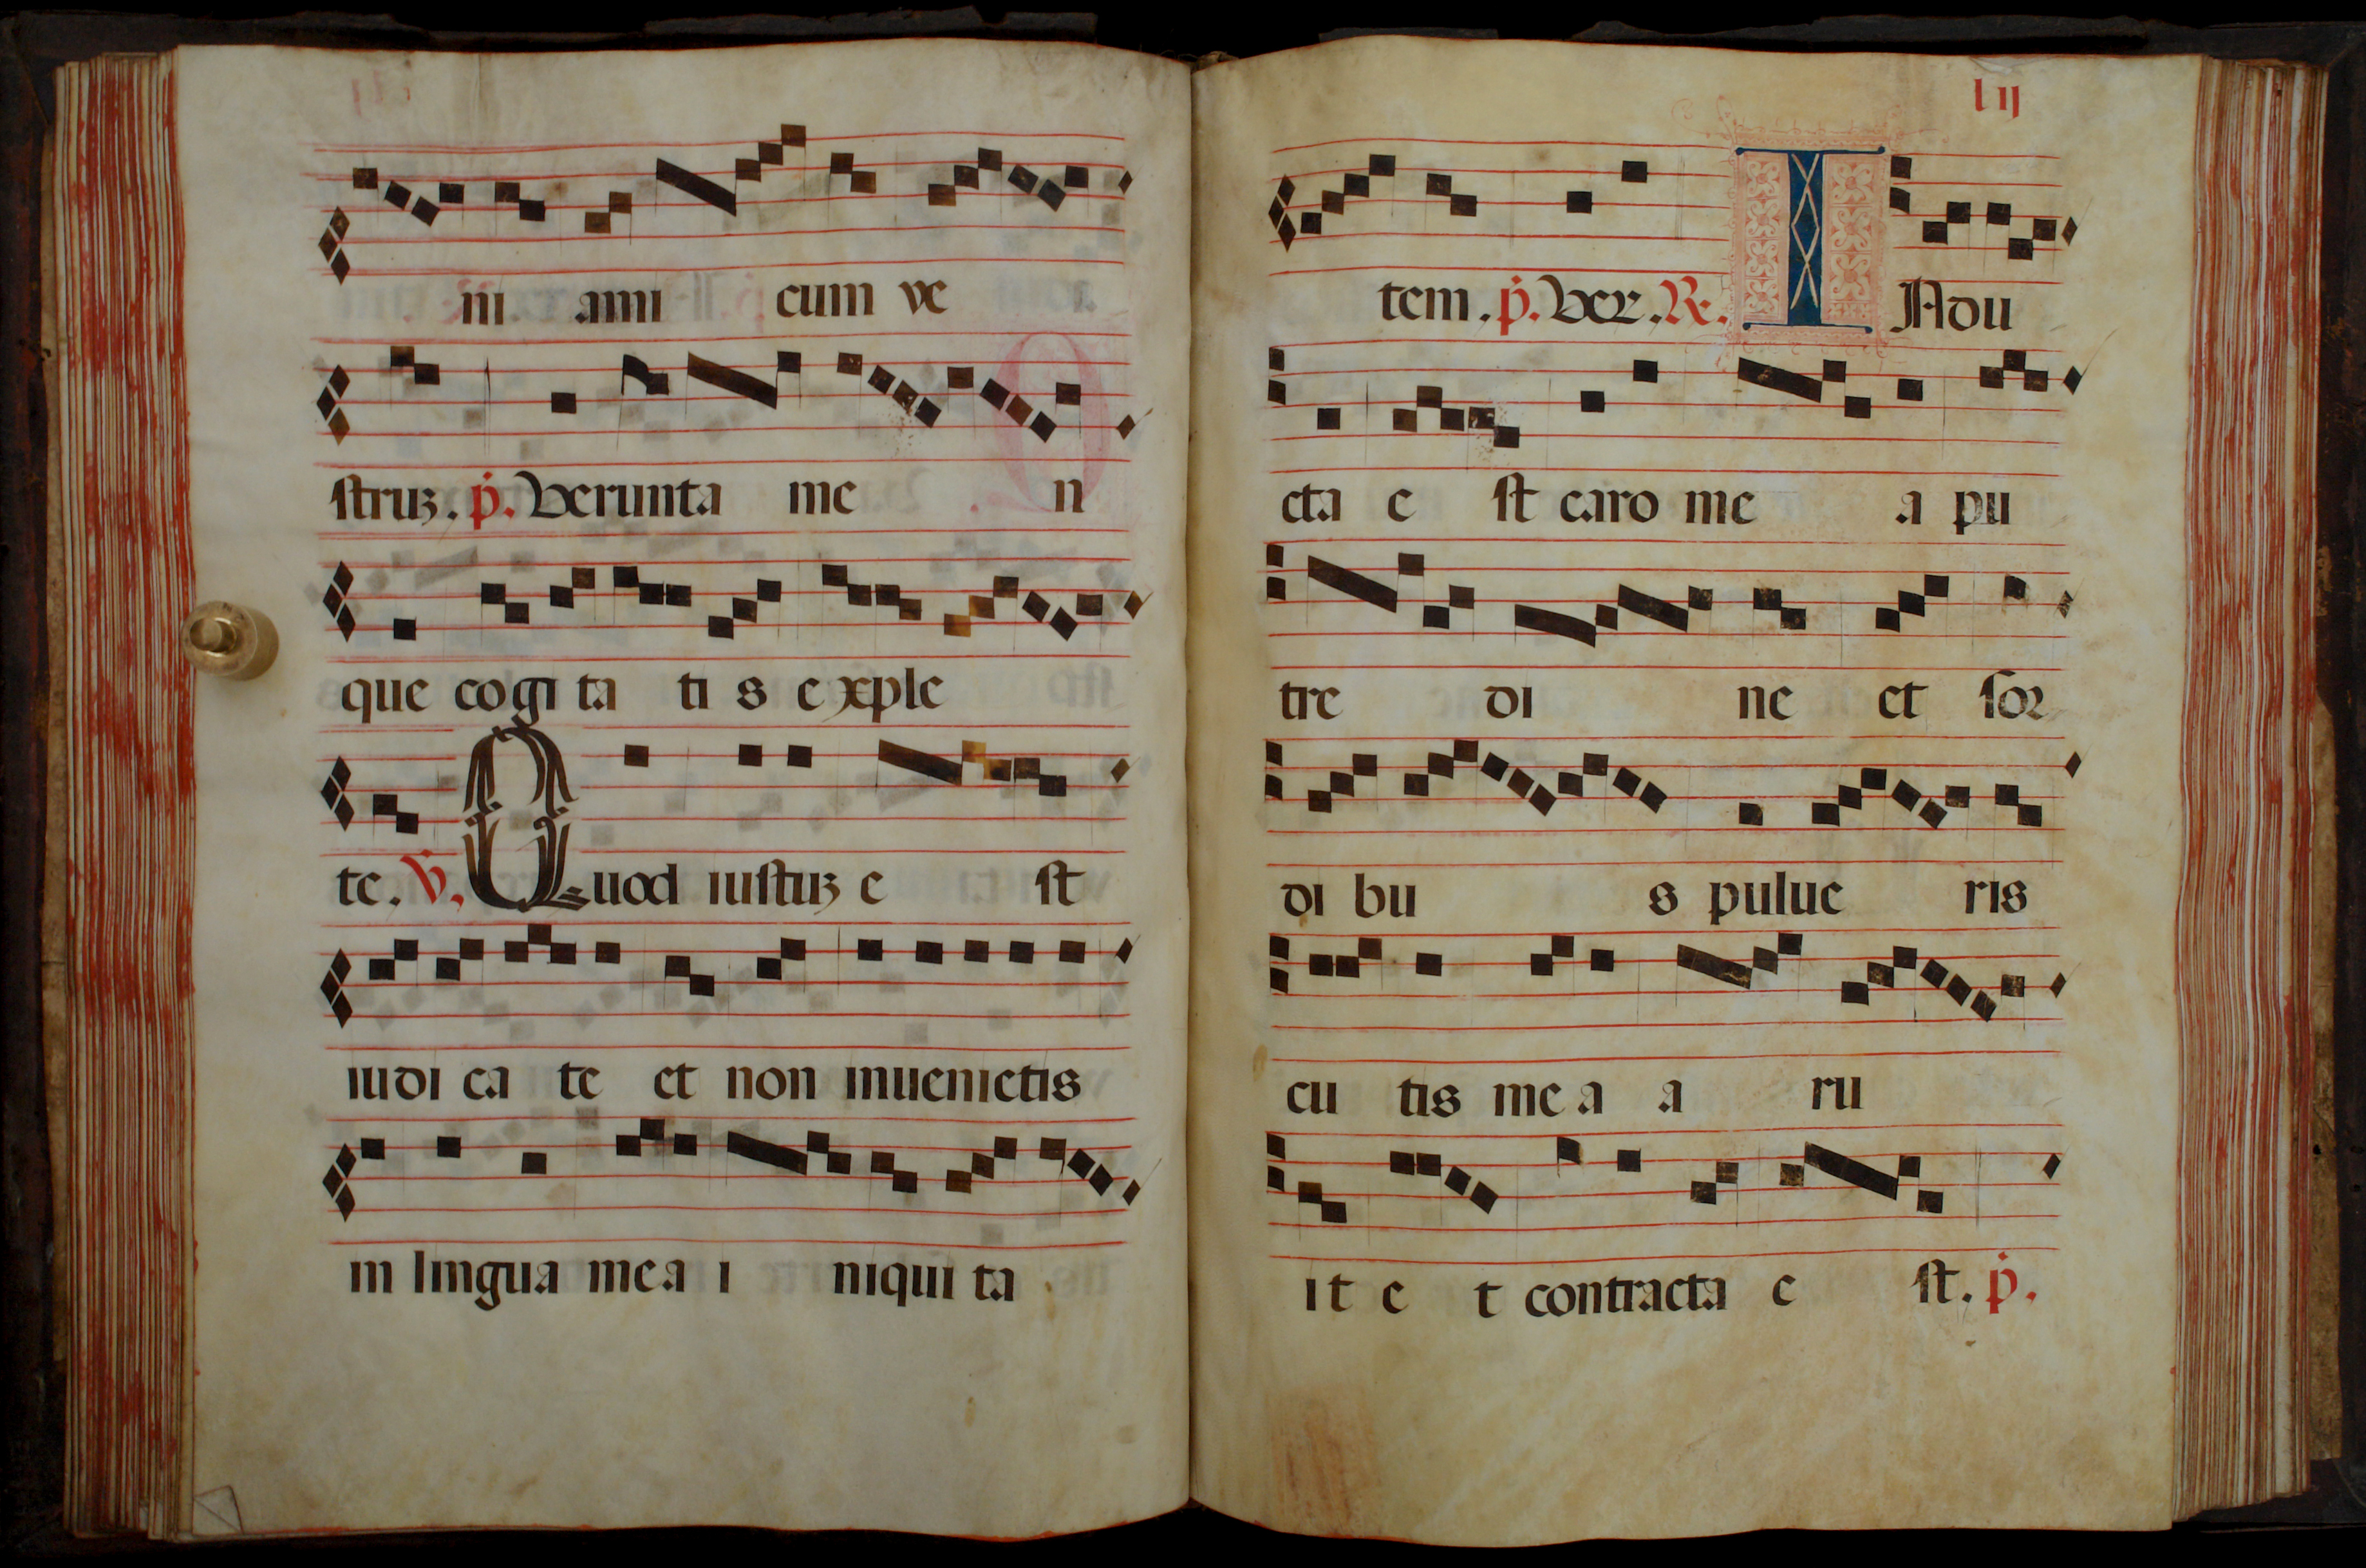 ni ami cum ve
struꝫ. ṗ. Verunta me n
que cogi ta ti s e xple
te. V̇. Quod iustuꝫ e st
iudi ca te et non inuenietis
in lingua mea i niqui ta
lij
tem. ṗ. Ver. R. INdu
cta e st caro me a pu
tre di ne et sor
di bu s pulue ris
cu tis me a a ru
it e t contracta e st. ṗ.